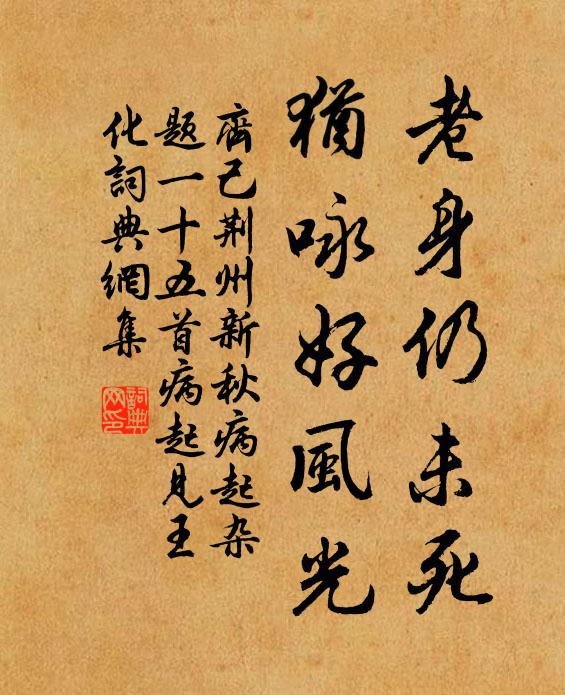 老身仍未死
猶咏好風光
齊己荆州新秋病起杂
题一十五首病起见王
化詞典網集
詞典网印